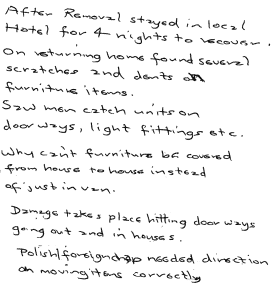 After Removal stayed in local
Hotel for 4 nights to recover.
On returning home found several
scratches and dents on
furniture items.
Saw men catch units on
doorways, light fittings etc.
Why can't furniture be covered
from house to house instead
of just in van.
Damage takes place hitting doorways
going out and in houses.
Polish/foreign chap needed direction
on moving items correctly